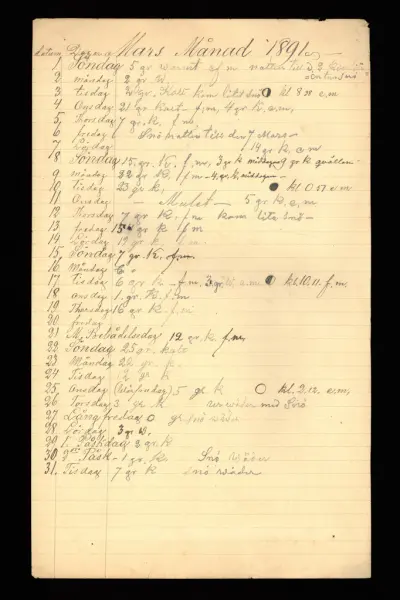 datum Dagar Mars Månad 1891
1 Söndag 5 gr varmt ef m natten till d. 2
2 måndag 2 gr w.
3 tisdag 2 gr. Kalt kom litet snö kl 8 e.m
4 Onsdag 21 gr kart - f.m, 4 gr k. e.m,
5 Thorsdag 7 gr k, f m.
6 fredag Snö natten till den 7 Mars -
7 Lördag 14 gr k. e m
8 Söndag 15 gr. K. f. m, 3 gr k middag 9 gr k quällen
9 måndag 22 gr k. f m - 4 gr k, middag -
10 Tisdag 23 gr k, kl 0.57 e m
11 Onsdag - Mulet - 5 gr k, e m
12 Thorsdag 7 gr k. f m kom lite snö -
13 fredag 15 gr k f m
14 Lördag 19 gr k f m.
15, Söndag 7 gr K. f.m.
16 Måndag 6 "
17 Tisdag 6 gr k - f.m, 3 gr e.m kl. 10.11. f. m.
18 onsdag 1. gr. K. f. m
19 Thorsdag 16 gr k. f. m
20 fredag
21 M. Bebådelsedag 12 gr. k f.m.
22 Söndag 25 gr. kalt
23 Måndag 22 gr. k.
24 Tisdag gr k
25 Onsdag 5 gr. k kl. 2.12. e.m,
26 Torsdag 3 gr k wäder med Snö
27 Långfredag 0 gr. snö wäder
28 Lördag 3 gr w.
29 1. Påskdag 2 gr. k
30 2 Påsk - 1 gr. k. Snö wäder
31. Tisdag 7 gr k snö wäder